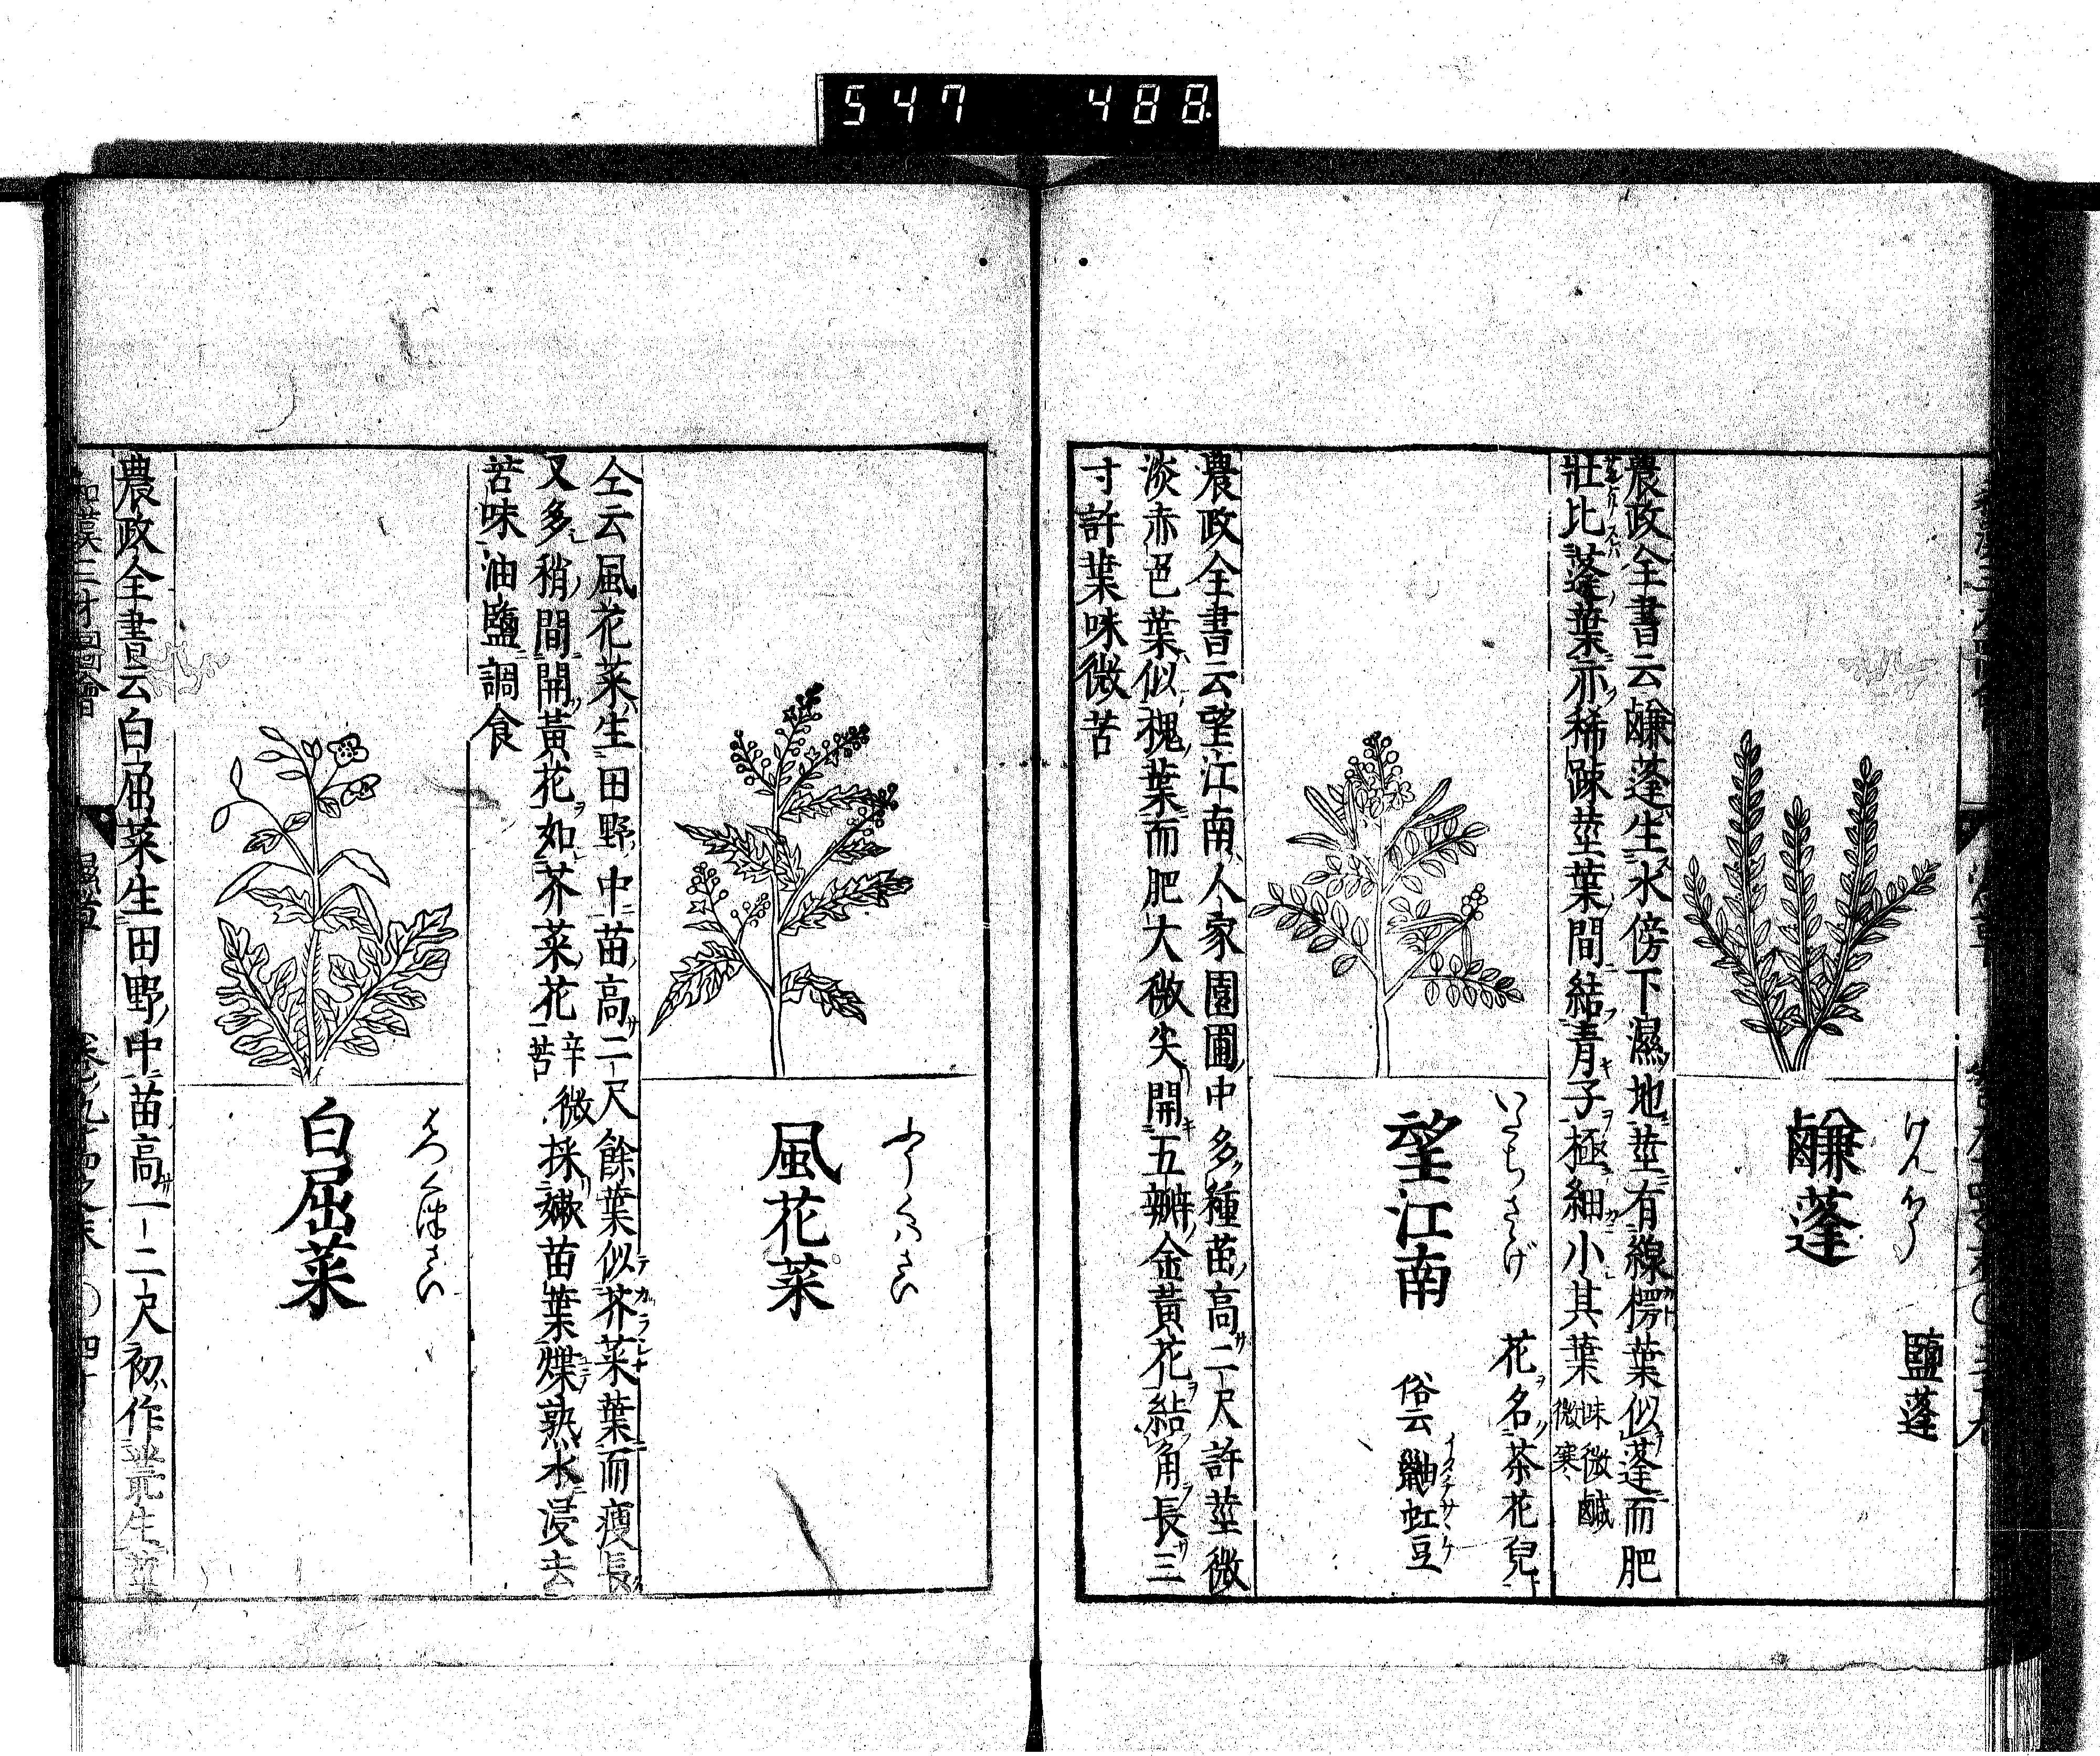 547 488
鹻蓬
けんほう
鹽蓬
農政全書云鹻蓬生水傍下濕地莖有線楞葉似蓬而肥
壯比蓬葉亦稀踈莖葉間結青子極細小其葉味微鹹微寒
望江南
いたちさゝげ
花名茶花兒
俗云鼬豇豆
イタチサヽケ
農政全書云望江南人家園圃中多種苗高二尺許莖微
淡赤色葉似槐葉而肥大微尖開五瓣金黃花結角長三
寸許葉味微苦
風花菜
ふうくはさい
仝云風花菜生田野中苗高二尺餘葉似芥菜葉而瘦長
又多稍間開黃花如芥菜花辛微苦採嫩苗葉煠熟水浸去
苦味油鹽調食
白屈菜
はつくつさい
農政全書云白屈菜生田野中苗高一二尺初作叢生莖
和漢三才圖會 濕草 卷九十四之末 〇四十